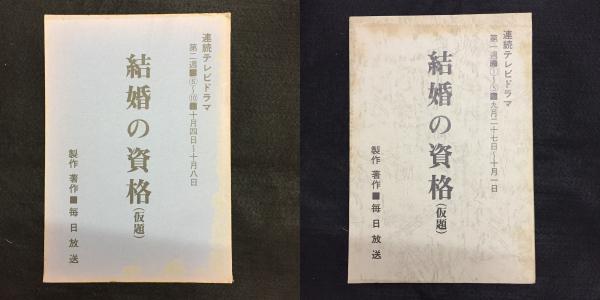 連続テレビドラマ
第二週■⑥〜⑩■十月四日〜十月八日
結婚の資格(仮題)
製作 著作■毎日放送
連続テレビドラマ
第一週■①〜⑤■九月二十七日〜十月一日
結婚の資格(仮題)
製作 著作■毎日放送